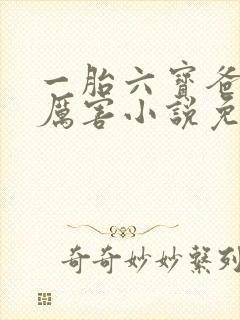 一胎六寶爸
厲害小說免
奇奇妙妙繫列